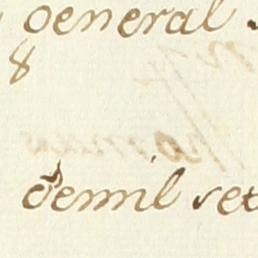 general
8
de mil set